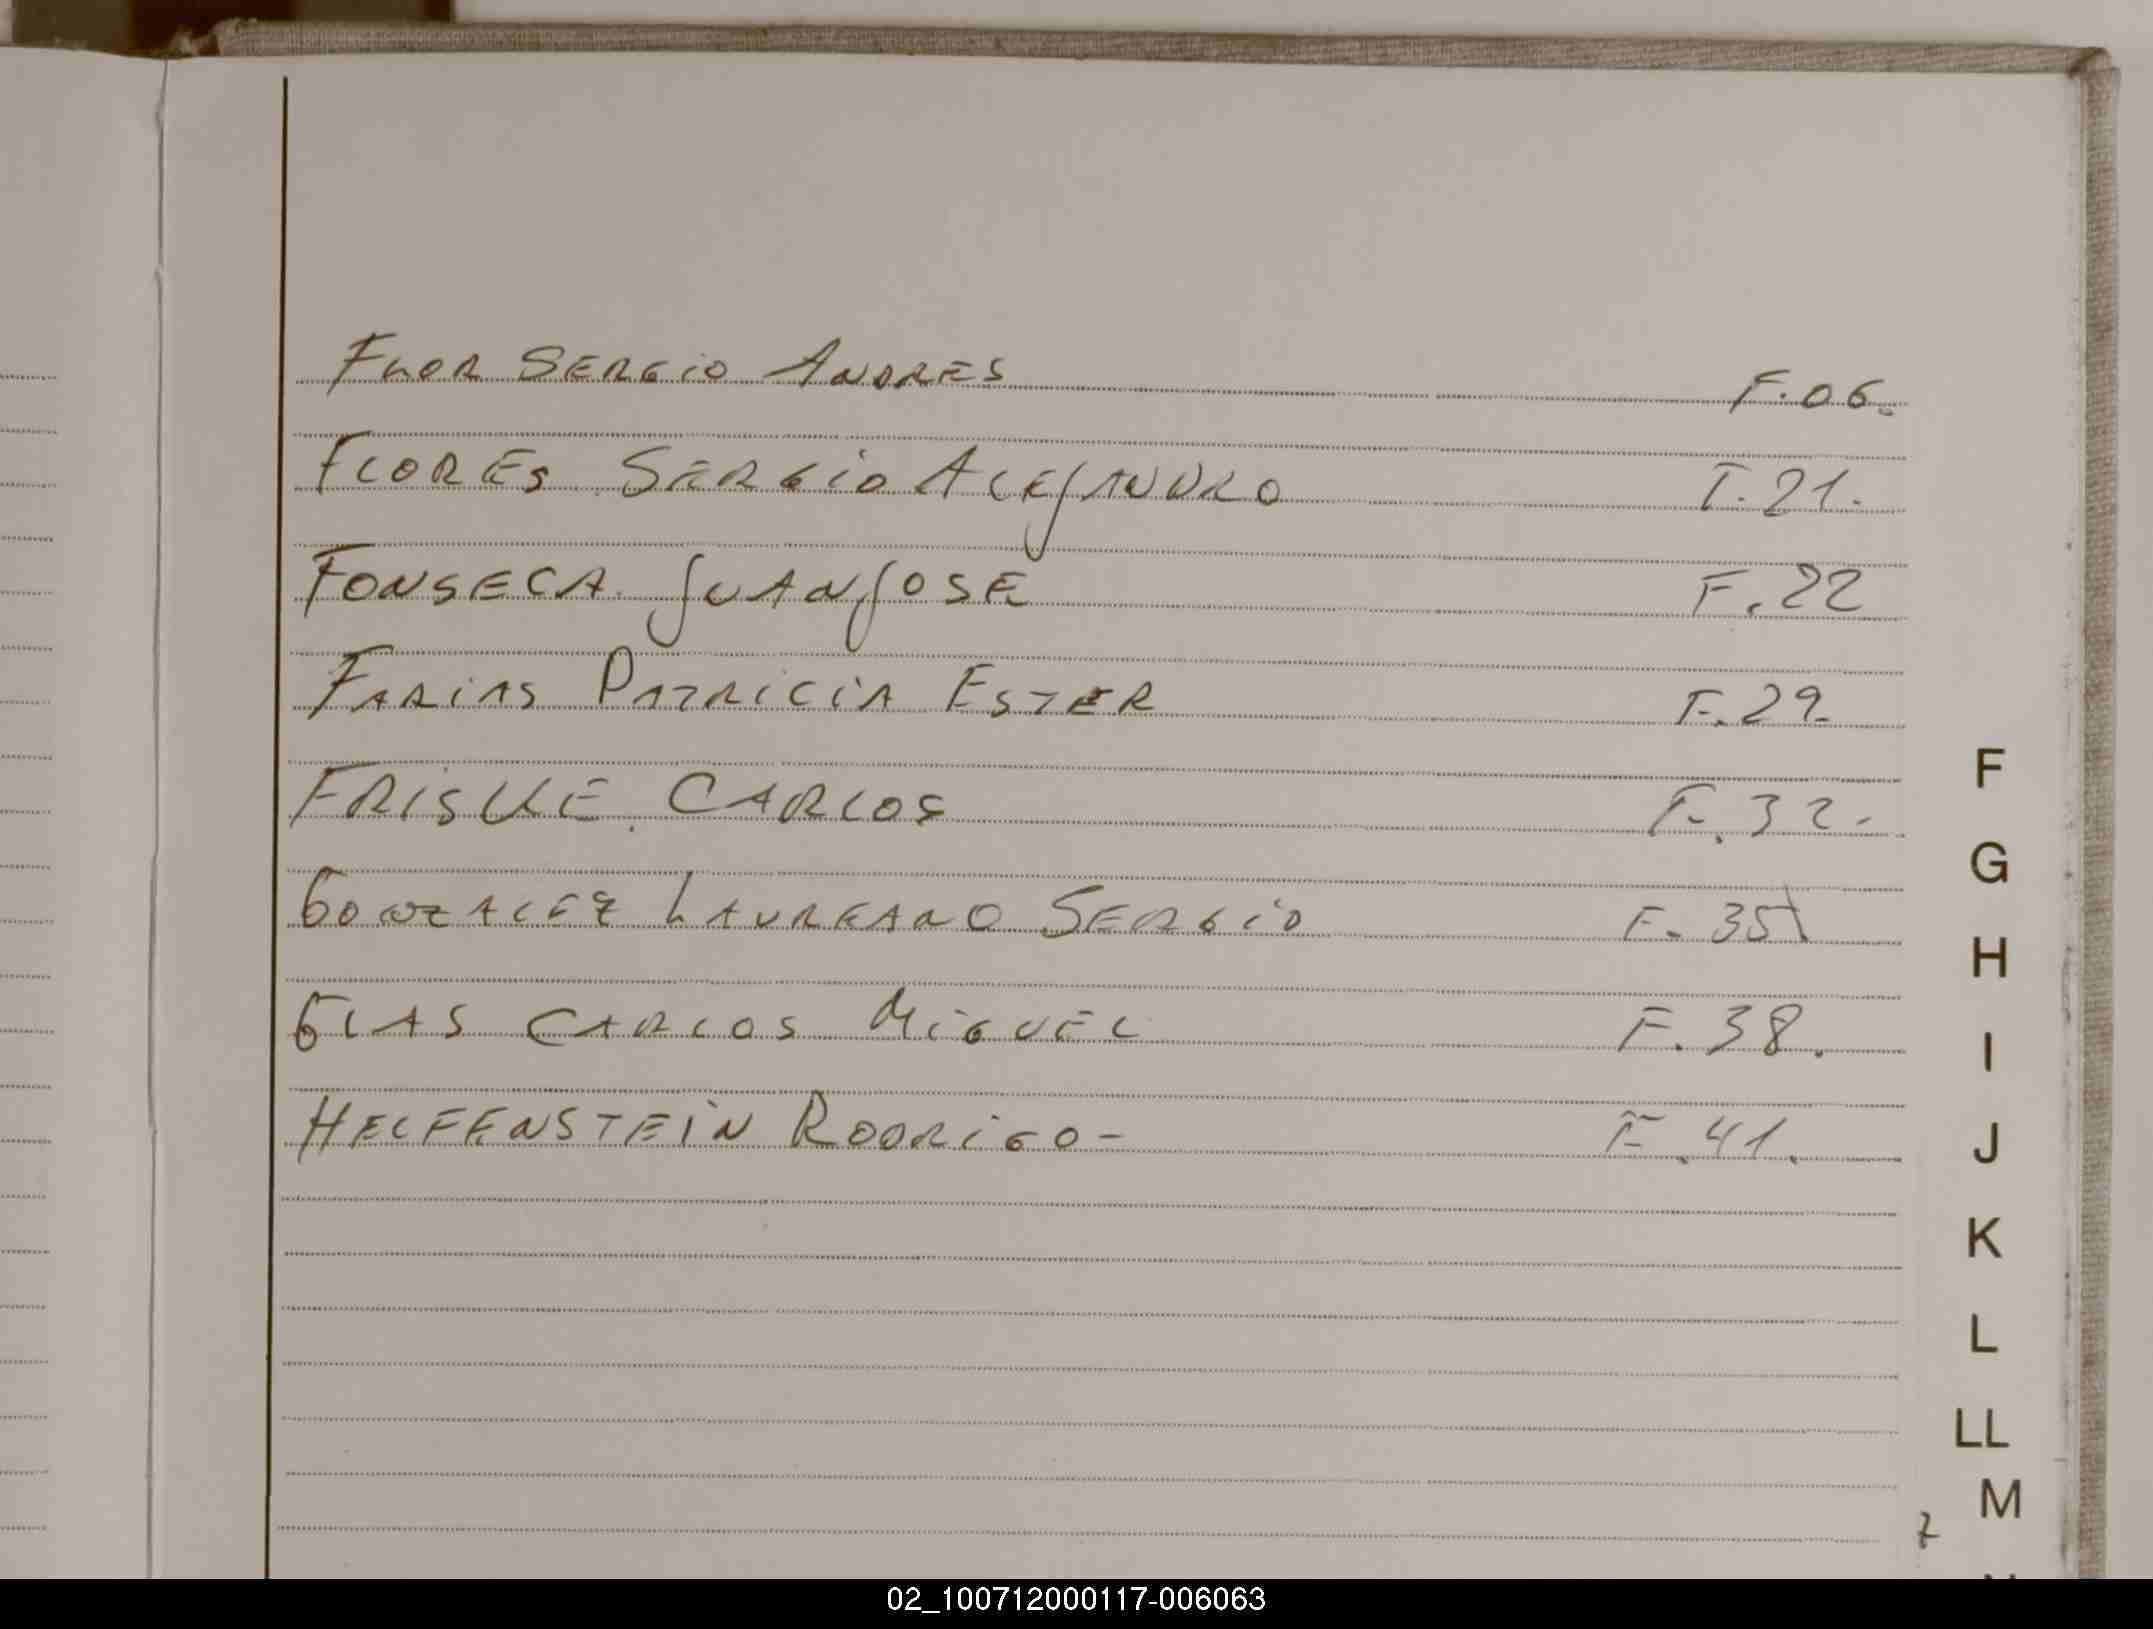 FLOR SERGIO ANDRES F.06.
FLORES SERGIO ALEJANDRO F.21.
FONSECA JUAN JOSE F.22
FARIAS PATRICIA ESTER F.29.
CARLOS F.32.
GONZALEZ LAUREANO SERGIO F.35
GLAS CARLOS MIGUEL F.38.
HELFFENSTEIN RODRIGO- F.41.
F
G
H
I
J
K
L
LL
M
02_100712000117-006063